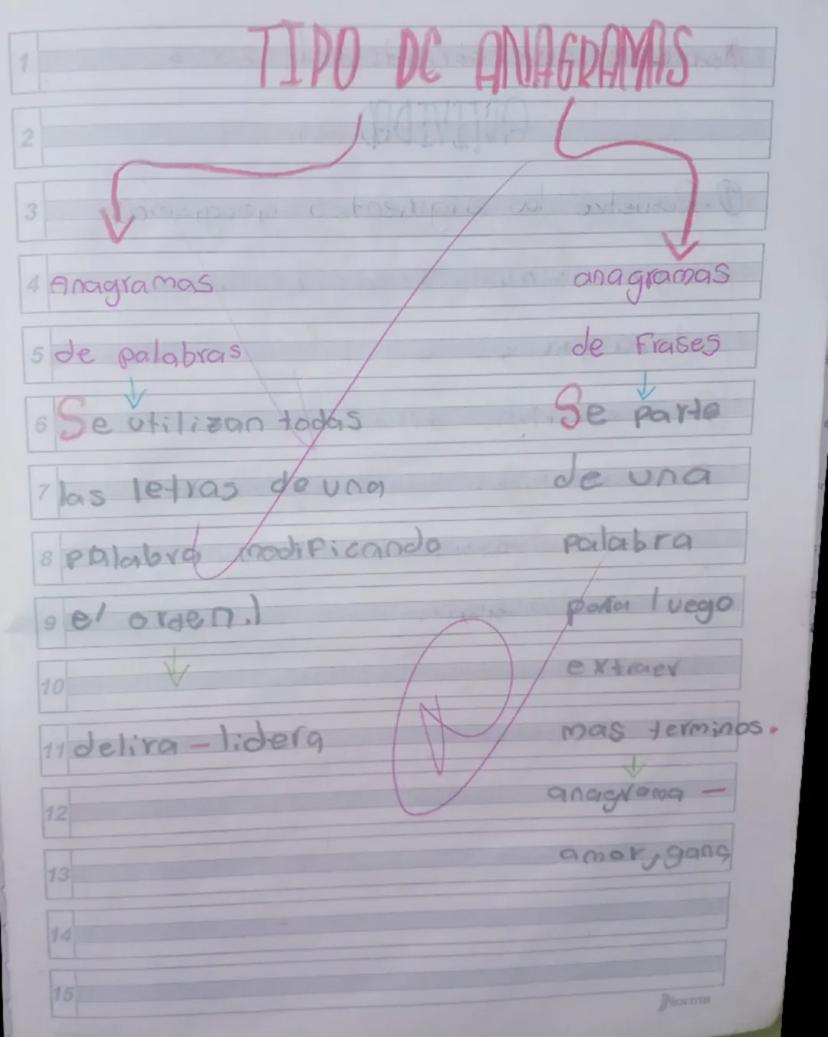 TIPO DE ANAGRAMAS
Anagramas
de palabras
Se utilizan todas
las letras de una
palabra modificando
el orden.
delira - lidera
anagramas
de Frases
Se parte
de una
palabra
para luego
extraer
mas terminos.
anagrama -
amar, gana
1
2
3
4
5
6
7
8
9
10
11
12
13
14
15
Norma